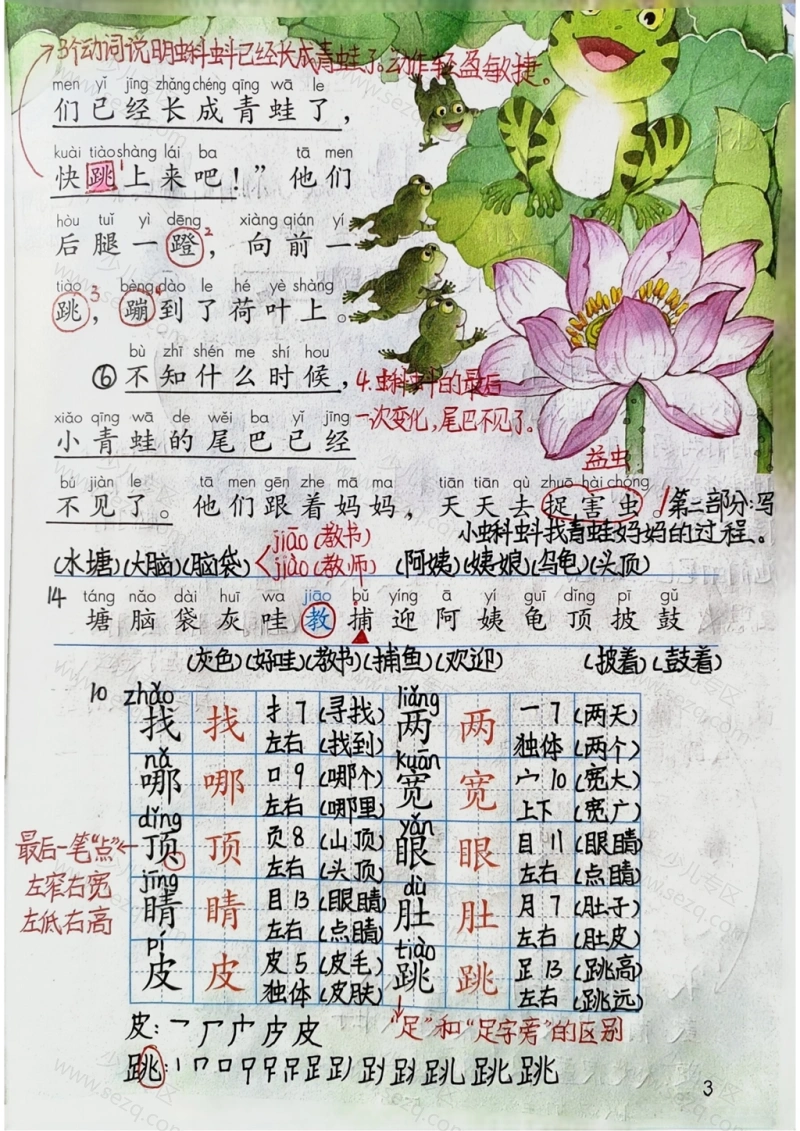 3个动词说明蝌蚪已经长成青蛙了。动作轻盈敏捷。
men yǐ jīng zhǎng chéng qīng wā le
们已经长成青蛙了，
kuài tiào shàng lái ba tā men
快跳1上来吧！”他们
hòu tuǐ yì dēng xiàng qián yí
后腿一蹬2，向前一
tiào bèng dào le hé yè shàng
跳3，蹦4到了荷叶上。
bù zhī shén me shí hou
⑥不知什么时候，
4.蝌蚪的最后
一次变化，尾巴不见了。
xiǎo qīng wā de wěi ba yǐ jīng
小青蛙的尾巴已经
益虫
bú jiàn le tā men gēn zhe mā ma tiān tiān qù zhuō hài chóng
不见了。他们跟着妈妈，天天去捉害虫。
第二部分：写
小蝌蚪找青蛙妈妈的过程。
jiāo（教书）
jiào（教师）
（水塘）（大脑）（脑袋） （阿姨）（姨娘）（乌龟）（头顶）
14 táng nǎo dài huī wa jiāo bǔ yíng ā yí guī dǐng pī gǔ
塘脑袋灰哇教捕迎阿姨龟顶披鼓
（灰色）（好哇）（教书）（捕鱼）（欢迎） （披着）（鼓着）
10 zhǎo liǎng
找 找 扌7（寻找） 两 两 一7（两天）
左右（找到） 独体（两个）
nǎ kuān
哪 哪 口9（哪个） 宽 宽 宀10（宽大）
左右（哪里） 上下（宽广）
dǐng yǎn
顶 顶 页8（山顶） 眼 眼 目11（眼睛）
左右（头顶） 左右（点睛）
最后一笔“点”
左窄右宽
左低右高
jīng dù
睛 睛 目13（眼睛） 肚 肚 月7（肚子）
左右（点睛） 左右（肚皮）
pí tiào
皮 皮 皮5（皮毛） 跳 跳 足13（跳高）
独体（皮肤） 左右（跳远）
“足”和“足字旁”的区别
皮：
跳：
3